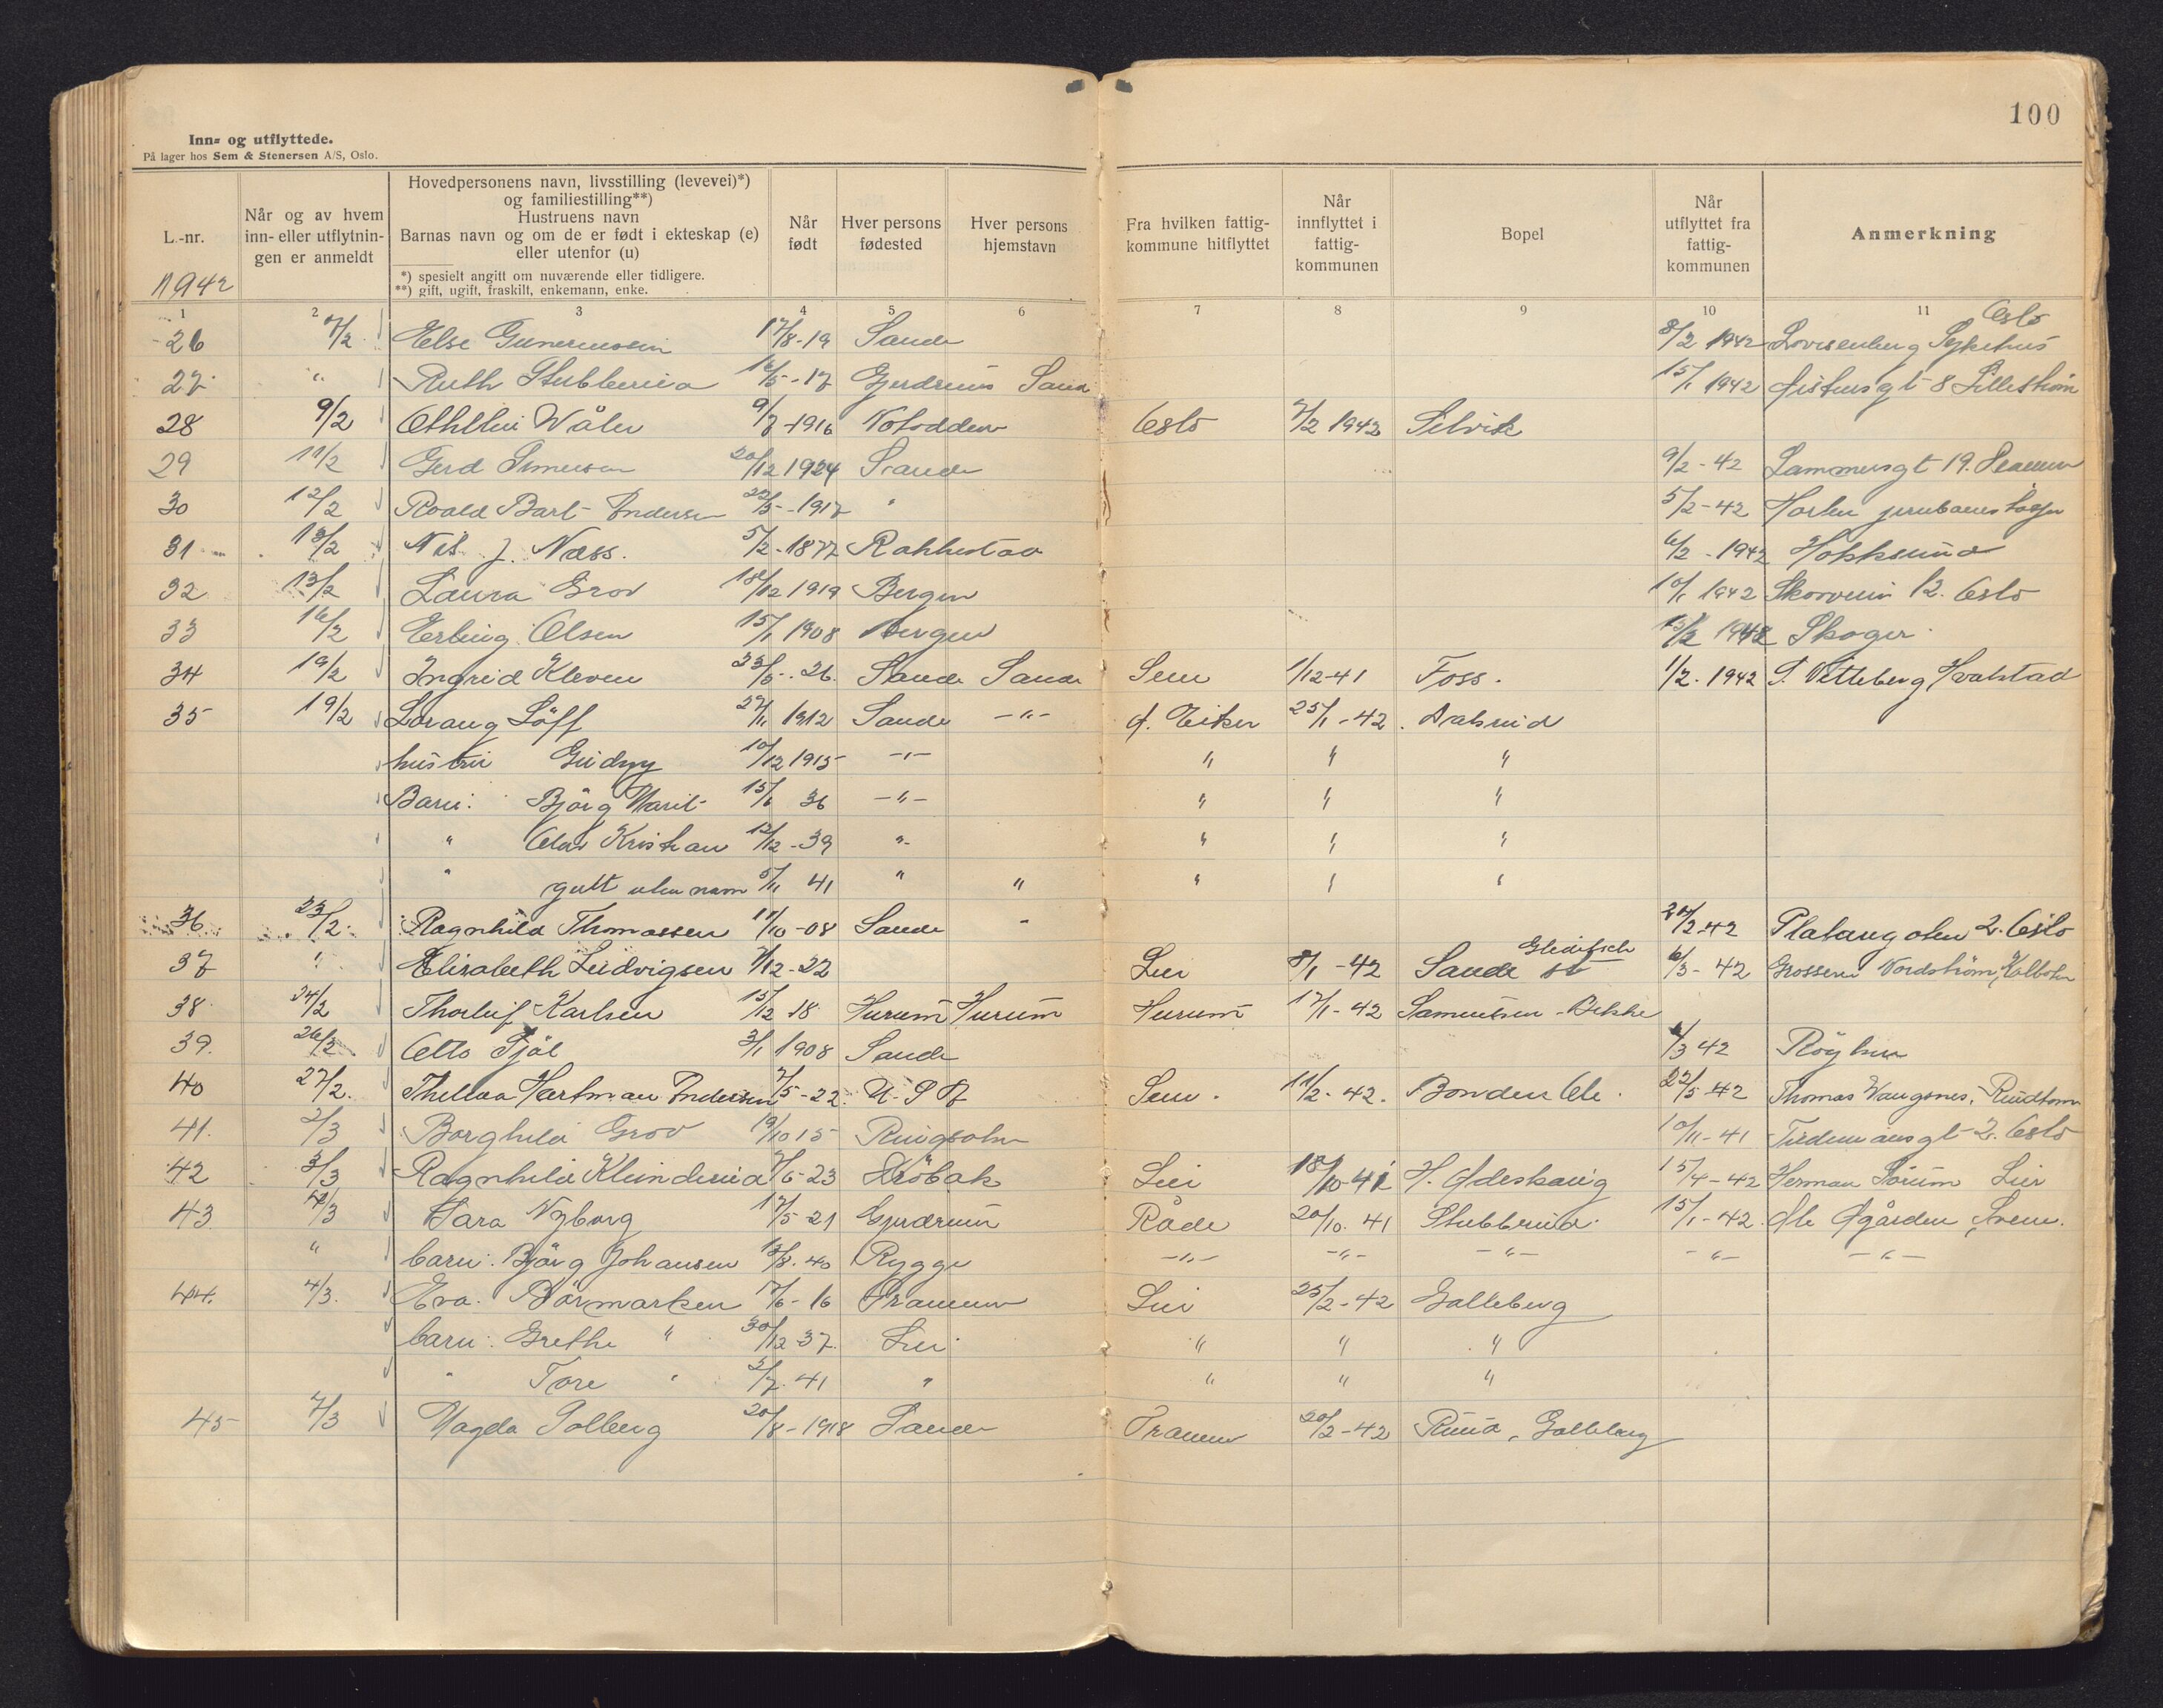 100
Inn- og utflyttede.
På lager hos Sem & Stenersen A/S, Oslo.
L.-nr.
1942
Når og av hvem
inn- eller utflytnin-
gen er anmeldt
Hovedpersonens navn, livsstilling (levevei)*)
og familiestilling**)
Hustruens navn
Barnas navn og om de er født i ekteskap (e)
eller utenfor (u)
*) spesielt angitt om nuværende eller tidligere.
**) gift, ugift, fraskilt, enkemann, enke.
Når
født
Hver persons
fødested
Hver persons
hjemstavn
Fra hvilken fattig-
kommune hitflyttet
Når
innflyttet i
fattig-
kommunen
Bopel
Når
utflyttet fra
fattig-
kommunen
Anmerkning
1 2 3 4 5 6 7 8 9 10 11
Oslo
26 7/2 Else 17/8-19 Sande 8/2 1942 Lovisenberg Sykehus
27 " Ruth Stubberud 16/5-17 Gjerdrum Sand 15/1 1942 8 Lillestrøm
28 9/2 Wåler 9/7-1916 Notodden Oslo 7/2 1942 Selvik
29 11/2 Gerd 20/12 1924 Sande 9/2-42 19.
30 12/2 Roald Andersen 22/5-1917 " 5/2-42 Horten
31 13/2 Nils J. Næss. 5/2-1877 Rakkestad 6/2-1942 Hokksund
32 13/2 Laura Grov 18/12 1919 Bergen 10/1 1942 12. Oslo
33 16/2 Erling Olsen 15/1 1908 Bergen 13/2 1942 Skoger
34 19/2 Ingrid Kleven 23/5-26. Sande Sande Sem 1/12-41 Foss. 1/2. 1942 Hvalstad
35 19/2 Lorang Löff 27/11 1912 Sande -"- Ø. Eiker 25/1-42
hustru Gudny 10/12 1915 -"- " " "
Barn: Björg Marit 15/6 36 -"- " " "
" Olav Kristian 12/12-39 " " " "
" gutt uten navn 5/11 41 " " " " "
36. 23/2. Ragnhild Thomassen 11/10-08 Sande " 24/2-42 2. Oslo
37 " Elisabeth Ludvigsen 7/12-22 Lier 8/1-42 Sande 6/3-42 Nordström, Kolbotn
38 24/2 Thorleif Karlsen 15/12 18 Hurum Hurum Hurum 17/1-42 Bekke
39. 26/2 Otto 3/1 1908 Sande 6/3 42 Röyken
40 27/2. Thelma Hartman Andersen 7/5-22. U.S.A Sem. 11/2-42. Bonden Ole. 22/5-42 Thomas
41. 2/3 Borghild Grov 19/10 15 10/11-41 2. Oslo
42 3/3 Ragnhild 7/6-23 Dröbak Lier 18/10-41 H. 15/4-42 Herman Lier
43 4/3 Sara Nyborg 17/5-21 Gjerdrum Råde 20/10. 41 Stubberud. 15/1-42.
" barn: Björg Johansen 13/8.40 Rygge -"- -"- -"- -"- -"-
44. 4/3. Eva 17/6-16 Drammen Lier 25/2-42 Galleberg
barn: Grethe " 30/12 37. Lier " " "
" Tore " 3/7.41 " " " "
45 7/3 Magda Solberg 20/8-1918 Sande Drammen 20/2-42 Ruud, Galleberg